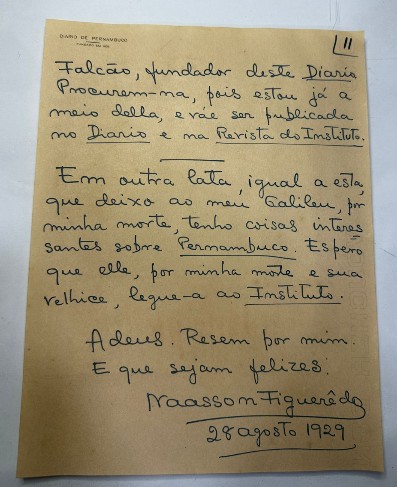 DIARIO DE PERNAMBUCO
11
Falcão, fundador deste Diario
Procurem-na, pois estou já a
meio della, e váe ser publicada
no Diario e na Revista do Instituto.
Em outra lata, igual a esta,
que deixo ao meu Galileu, por
minha morte, tenho coisas interes
santes sobre Pernambuco. Espero
que elle, por minha morte e sua
velhice, legue-a ao Instituto.
Adeus. Resem por mim.
E que sejam felizes.
Naasson Figuerêdo
28 agosto 1929